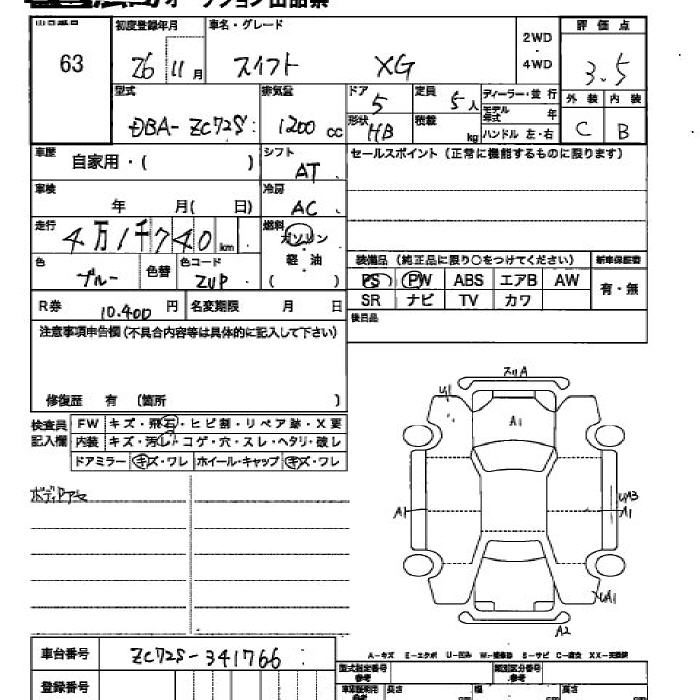 オークション出品票
63
初度登録年月
26 11月
車名・グレード
スイフト XG
2WD
・
4WD
評価点
3.5
外装 内装
C B
型式
DBA-ZC72S
排気量
1200 cc
ドア
5
形状
HB
定員
5人
積載
kg
ディーラー・並行
モデル年式 年
ハンドル 左・右
車歴
自家用・( )
シフト
AT
セールスポイント (正常に機能するものに限ります)
車検
年 月( 日)
冷房
AC
走行
4万1千740 km
燃料
ガソリン
軽 油
( )
色
ブルー
色替
色コード
ZUP
装備品 (純正品に限り○をつけてください)
新車保証書
PS PW ABS エアB AW
有・無
SR ナビ TV カワ
R券 10.400 円
名変期限 月 日
後日品
注意事項申告欄(不具合内容等は具体的に記入して下さい)
修復歴 有 (箇所 )
検査員
記入欄
FW キズ・飛石・ヒビ割・リペア跡・X要
内装 キズ・汚レ・コゲ・穴・スレ・ヘタリ・破レ
ドアミラー キズ・ワレ ホイール・キャップ キズ・ワレ
ボディUアセ
スリA
U1
A1
A1
UA3
A1
UA1
A2
車台番号 ZC72S-341766
A-キズ E-エクボ U-凹み W-補修跡 S-サビ C-腐食 XX-交換済
登録番号
型式指定番号
参考
類別区分番号
参考
長さ cm
幅 cm